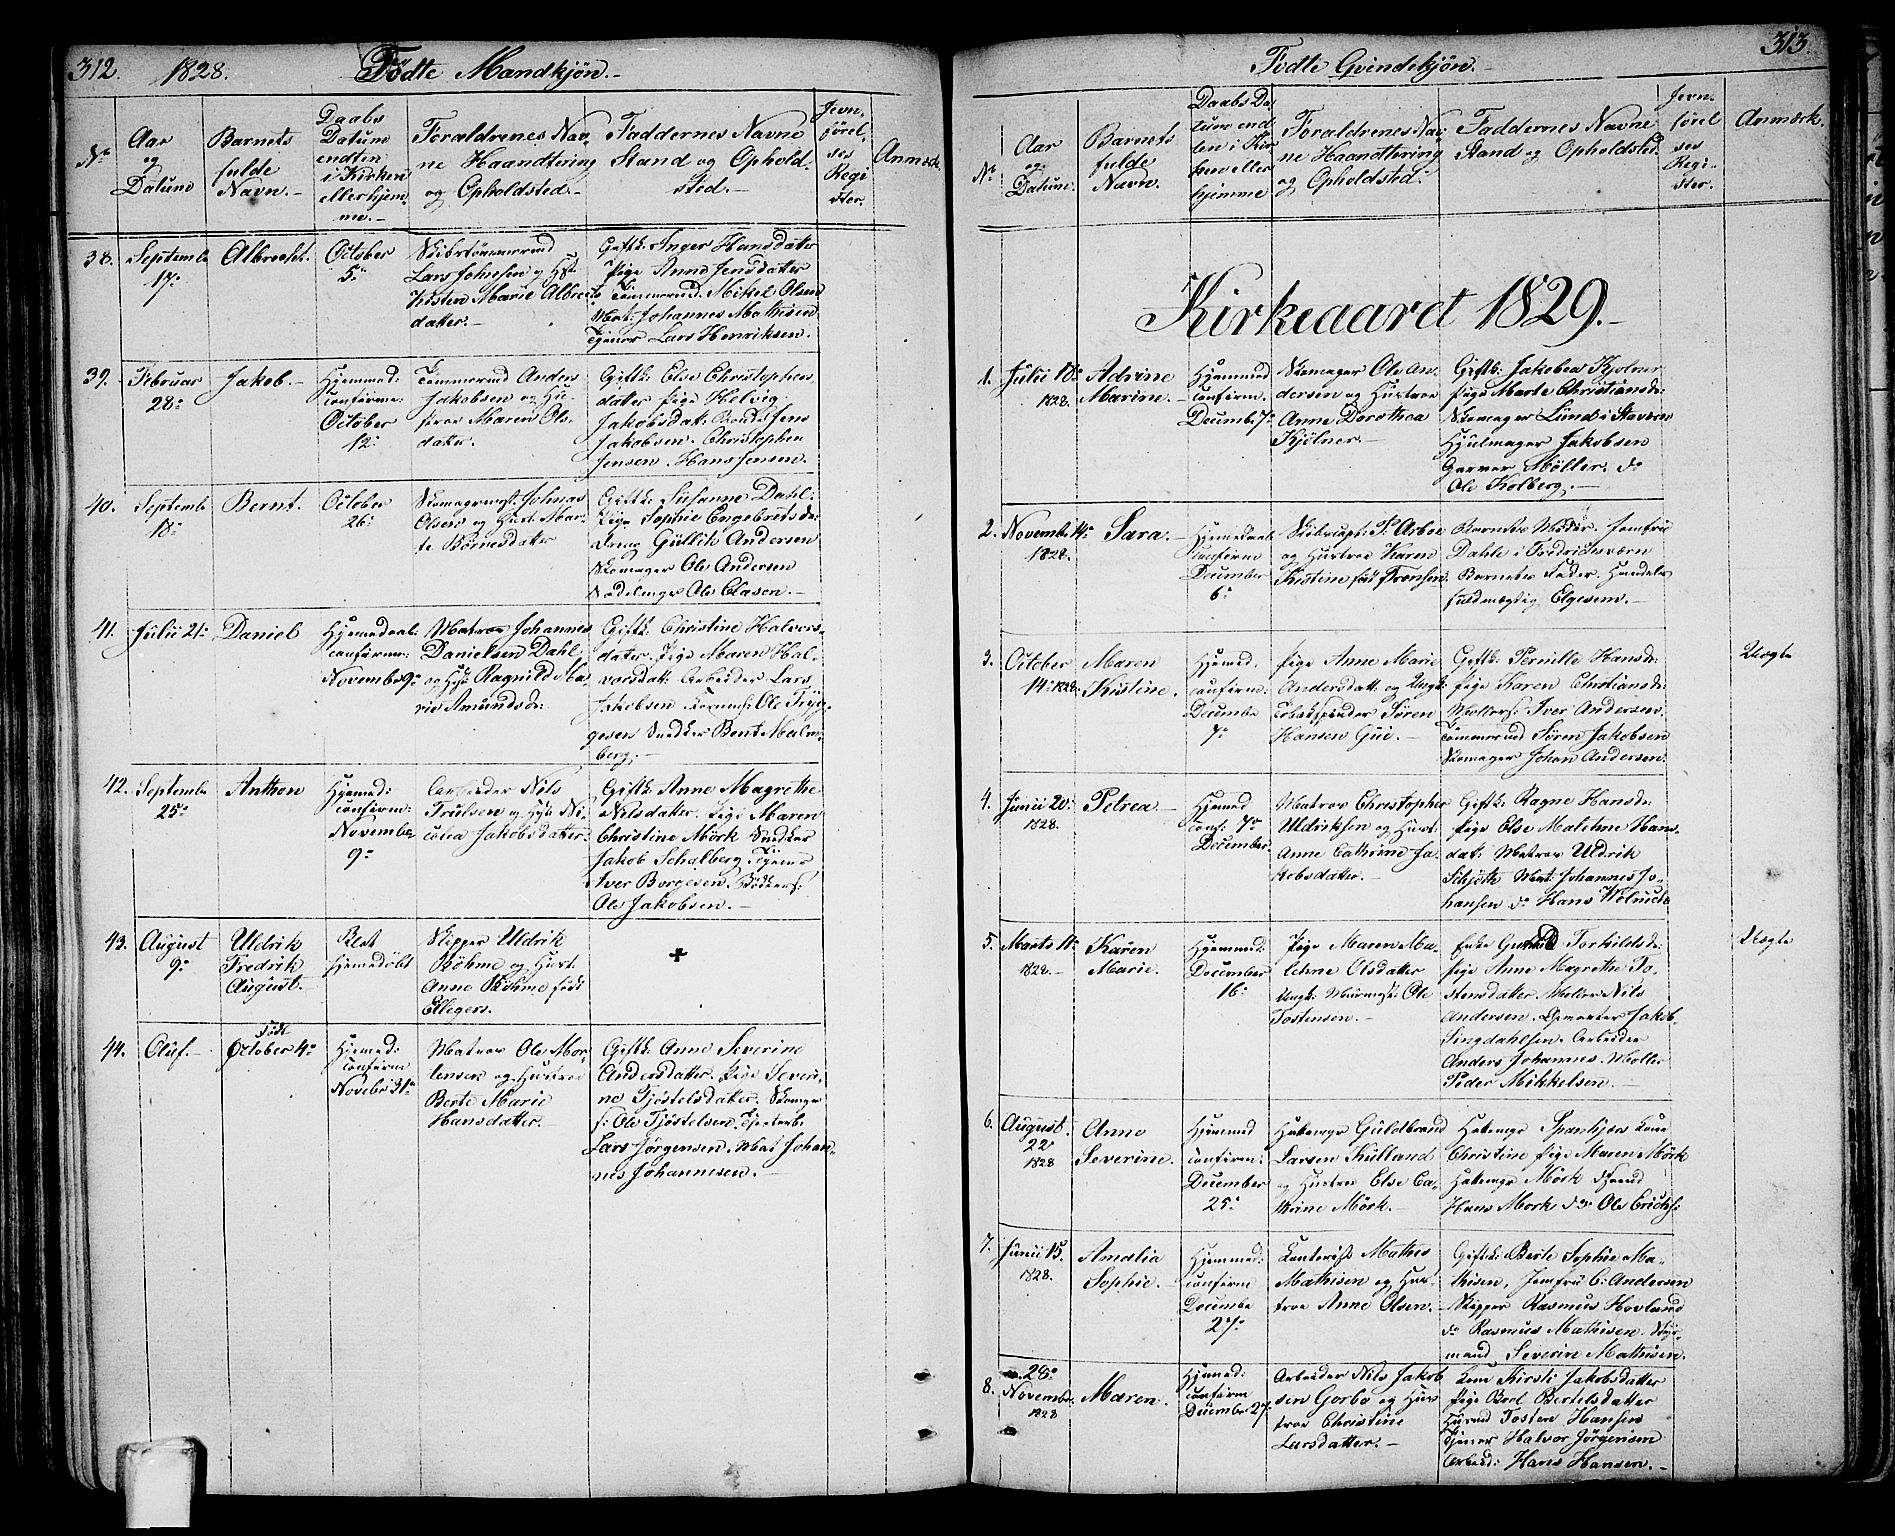 312. 1828. Fødte Mandkjøn.-
No
Aar
og
Datum
Barnets
fulde
Navn.-
Daabs
Datum
endten
i Kirken
eller hjem-
me.-
Foraldrenes Nav-
ne Haandtering
og Opholdsted.-
Faddernes Navne
Stand og Ophold-
sted.-
Jevn-
førel-
ses
Regi
ster.
Anmærk.
38.
Septembe
17de
Albrecht.
October
5te
Skibstømmermd
Lars Johnsen og Hst
Kisten Marie Albrects
datter.-
Giftk: Inger Hansdatter
Pige Anne Jensdatter
Tømmermd. Mikel Olsen
Mat: Johannes Mathisen
Tjener Lars Henriksen.
39.
Februar
28de
Jakob.-
Hjemmed:
confirme:
October
12te
Tømmermd Anders
Jakobsen og Hu-
strue Maren Ols-
datter.
Giftk: Else Christophers
datter Pige Helvig
Jakobsdatt: Jens
Jakobsen. Christophen
Jensen. Hans Jensen.
40.
Septembe
18de
Bernt.
October
26de
Skomagermst. Johnas
Olsen og Hust Mar-
te Børnesdatter
Giftk: Susanne Dahl:
Pige Sophie Engebretsdr
Dreng Güllik Andersen
Skomager Ole Andersen
Sadelmgr Ole Clasen.-
41.
Julii 21de
Daniel
Hjemmedaab:
confirmer:
Novembe 9de
Matros Johannes
Danielsen Dahl
og Hst Ragnild Ma-
rie Amundsdr:
Giftk: Christine Halvors-
datter. Pige Maren Hal-
vorsdatt: Arbeider Lars
Jakobsen Ole Tryg-
gesen Snedker Bent Malm-
berg.-
42.
Septembe
25de
Anthon
Hjemmed:
confirm:
Novembe
9de
Arbeider Nils
Trulsen og Hst Ni-
colea Jakobsdatter
Giftk: Anne Magrethe
Nilsdatter. Pige Maren
Christine Mørk Snedker
Jakob Schalberg Tjener
Iver Borgesen. Bødkers:
Ole Jakobsen.-
43.
August
9de
Uldrik
Fredrik
August.-
Blot
hjemmedøbt
Skipper Uldrik
Böhme og Hust.
Anne Böhme født
Ellegers.
+
44.
Oluf.-
Født
October 4de
Hjemmed:
confirm
Novebr 31te
Matros Ole Mor-
tensen og Hustroe
Berte Marie
Hansdatter.-
Giftk: Anne Severine
Andersdatter. Pige Severi-
ne Tjöstelsdatter. Skomger
s: Ole Tjöstelsen.
Lars Jørgensen. Mat Johan-
nes Johannesen.-
Fødte Qvindekjøn.- 313.
No
Aar
og
Datum.
Barnets
fulde
Navn.
Daabs Da-
tum end
ten i Kir
ken eller
hjemme
Foraldrenes Nav-
ne Haandtering
og Opholdsted.
Faddernes Navne
Stand og Opholdsted.
Jevn-
førel
ses
Regi-
ster.
Anmærk.
Kirkeaaret 1829.-
1.
Julii 18de
1828.
Adrine
Marine.-
Hjemmed
confirm.
Decemb. 7de
Skomager Ole An-
dersen og Hustroe
Anne Dorothea
Kjølner.-
Giftk: Jakobea Kjolner
Pige Marte Christiansdr:
Skomager Lünd i Stavern
Hjulmager Jakobsen
Garver Møller. do
Ole Kolberg.-
2.
Novembe 14de
1828.
Sara.-
Hjemmedaab
confirme
December
6te
Skibscapt: P. Arboe
og Hustroe Karen
Kistine født Fronsen
Barnets Moder. Jomfru
Dahle i Fredriksværn
Barnets Fader. Handels
fuldmægtig Elgesem.-
3.
October
14de 1828.
Maren
Kistine.
Hjemmed.
confirm:
Decembe
7de
Pige Anne Marie
Andersdatt: og Ungk:
Tobakspinder Søren
Hansen Gui.-
Giftk: Pernille Hansdr:
Pige Karen Christiansdr:
Møllers: Iver Andersen.
Tømmermd Søren Jakobsen
Skomager Johan Andersen.
Uægte
4.
Junii 20de
1828.
Petrea.-
Hjemmed
conf: 7de
December.
Matros Christopher
Uldriksen og Hust:
Anne Cathrine Ja-
kobsdatter.-
Giftk: Ragne Hansdr:
Pige Else Malene Hans-
dat: Matros Uldrik
Schjøth Mat: Johannes Jo-
hansen do Hans Wolnicke
5.
Marts 11te
1828.-
Karen
Marie.
Hjemmed:
December
16de
Pige Maren Ma-
lehne Olsdatter
Ungk: Murmest: Ole
Tostensen.-
Enke Torkildsdr:
Pige Anne Magrethe To-
stensdatter. Møller Nils
Andersen. Jakob
Singdahlsen. Arbeider
Anders Johannes. Møller
Peder Mikkelsen.-
Uægte
6.
August
22de
1828
Anne
Severine.
Hjemmed
confirm:
December
25de
Hattemgr Guldbrand
Larsen Külland
og Hustroe Else Ca-
thrine Mørk.-
Hattemgr Spankjærs Kone
Christine Pige Maren Mörk
Hattemgr Mörk Svend
Hans Mork do Ole Ericks:
7.
Junii 15.
1828.
Amalia
Sophie.
Hjemmed:
confirm
Decembe
27de
Kontorist Mathis
Mathisen og Hus-
troe Anne Olsen.
Giftk: Berte Sophie Ma-
thisen, Jomfru C: Andersen
Skipper Rasmus Hovland
do Rasmus Mathisen. Styr-
mand Severin Mathisen.
8.
28de
Novembe
1828
Maren.
Hjemmed:
confirm
Decembr 27.
Arbeider Nils Jakob
sen Gorbo og Hus
troe Christine
Larsdatter.-
Kone Kirsti Jakobsdatter
Pige Boel Bertelsdatter
Tosten Hansen
Tjener Halvor Jørgensen
Arbeid: Hans Hansen.-